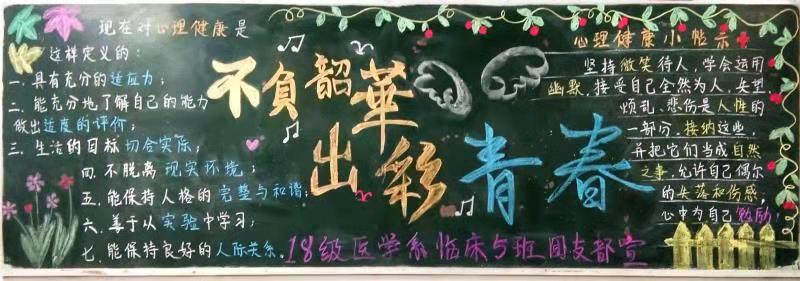 现在对心理健康是
这样定义的：
一.具有充分的适应力；
二.能充分地了解自己的能力
做出适度的评价；
三.生活的目标切合实际；
四.不脱离现实环境；
五.能保持人格的完整与和谐；
六.善于从实验中学习；
七.能保持良好的人际关系.
不負韶華
出彩青春
心理健康小帖示
坚持微笑待人，学会运用
幽默，接受自己全然为人，失望，
烦乱，悲伤是人性的
一部分，接纳这些，
并把它们当成自然
之事，允许自己偶尔
的失落和伤感；
心中为自己勉励；
18级医学系临床5班团支部宣